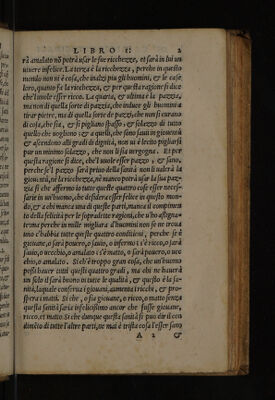 LIBRO I: 2
rà amalato nō potrà vsar le sue ricchezze, et sarà in lui un
viuere infelice. La terza è la ricchezza, perche in questo
mondo non ui è cosa, che inalzi piu gli huomini, & le case
loro, quanto fa la ricchezza, & per questa ragione si dice
che l'uole esser ricco. La quarta, & ultima è la pazzia,
ma non di quella sorte di pazzia, che induce gli huomini a
tirar pietre, ma di quella sorte de pazzi, che non si curano
di cosa, che sia, & si pigliano spasso, & solazzo di tutto
quello che uogliono; & a quelli, che sono saui in giouentù
& ascendono alli gradi di dignità, non ui è lecito pigliarsi
pur un minimo solazzo, che non li sia uergogna. Et per
questa ragione si dice, che l'uuole esser pazzo, & sano,
perche se'l pazzo sarà priuo della sanità non li ualerà la
giouentù, nè la ricchezza, nè manco potrà usar la sua paz
zia si che affermo io tutte queste quattro cose esser neces-
sarie in un'huomo, che desidera esser felice in questo mon-
do, & a chi manca una di queste parti, manca il compimen
to della felicità per le sopradette ragioni, che u'ho assigna-
te ma perche in mille migliara d'huomini non se ne troua
uno c'habbia tutte queste quattro conditioni, perche se è
giouane, o sarà pouero, o sauio, o infermo: s'è ricco, o sarà
sauio, o uecchio, o amalato: s'è matto, o sarà pouero, o uec
chio, o amalato. Si ch'è troppo gran cosa, che un'huomo
possi hauer tutti questi quattro gradi, ma chi ne hauerà
un solo il sarà buono in tutte le qualità, & questo è la sa-
nità, laquale conserua i giouani, aumenta i ricchi, & pro-
spera i matti. Si che, o sia giouane, o ricco, o matto senza
questa sanità saria infelicissimo anchor che fusse giouane,
ricco, et matto. Si che dunque questa sanità si può dir il con
dimēto di tutte l'altre parti, ne mai è trista cosa l'esser sano
A 2 &